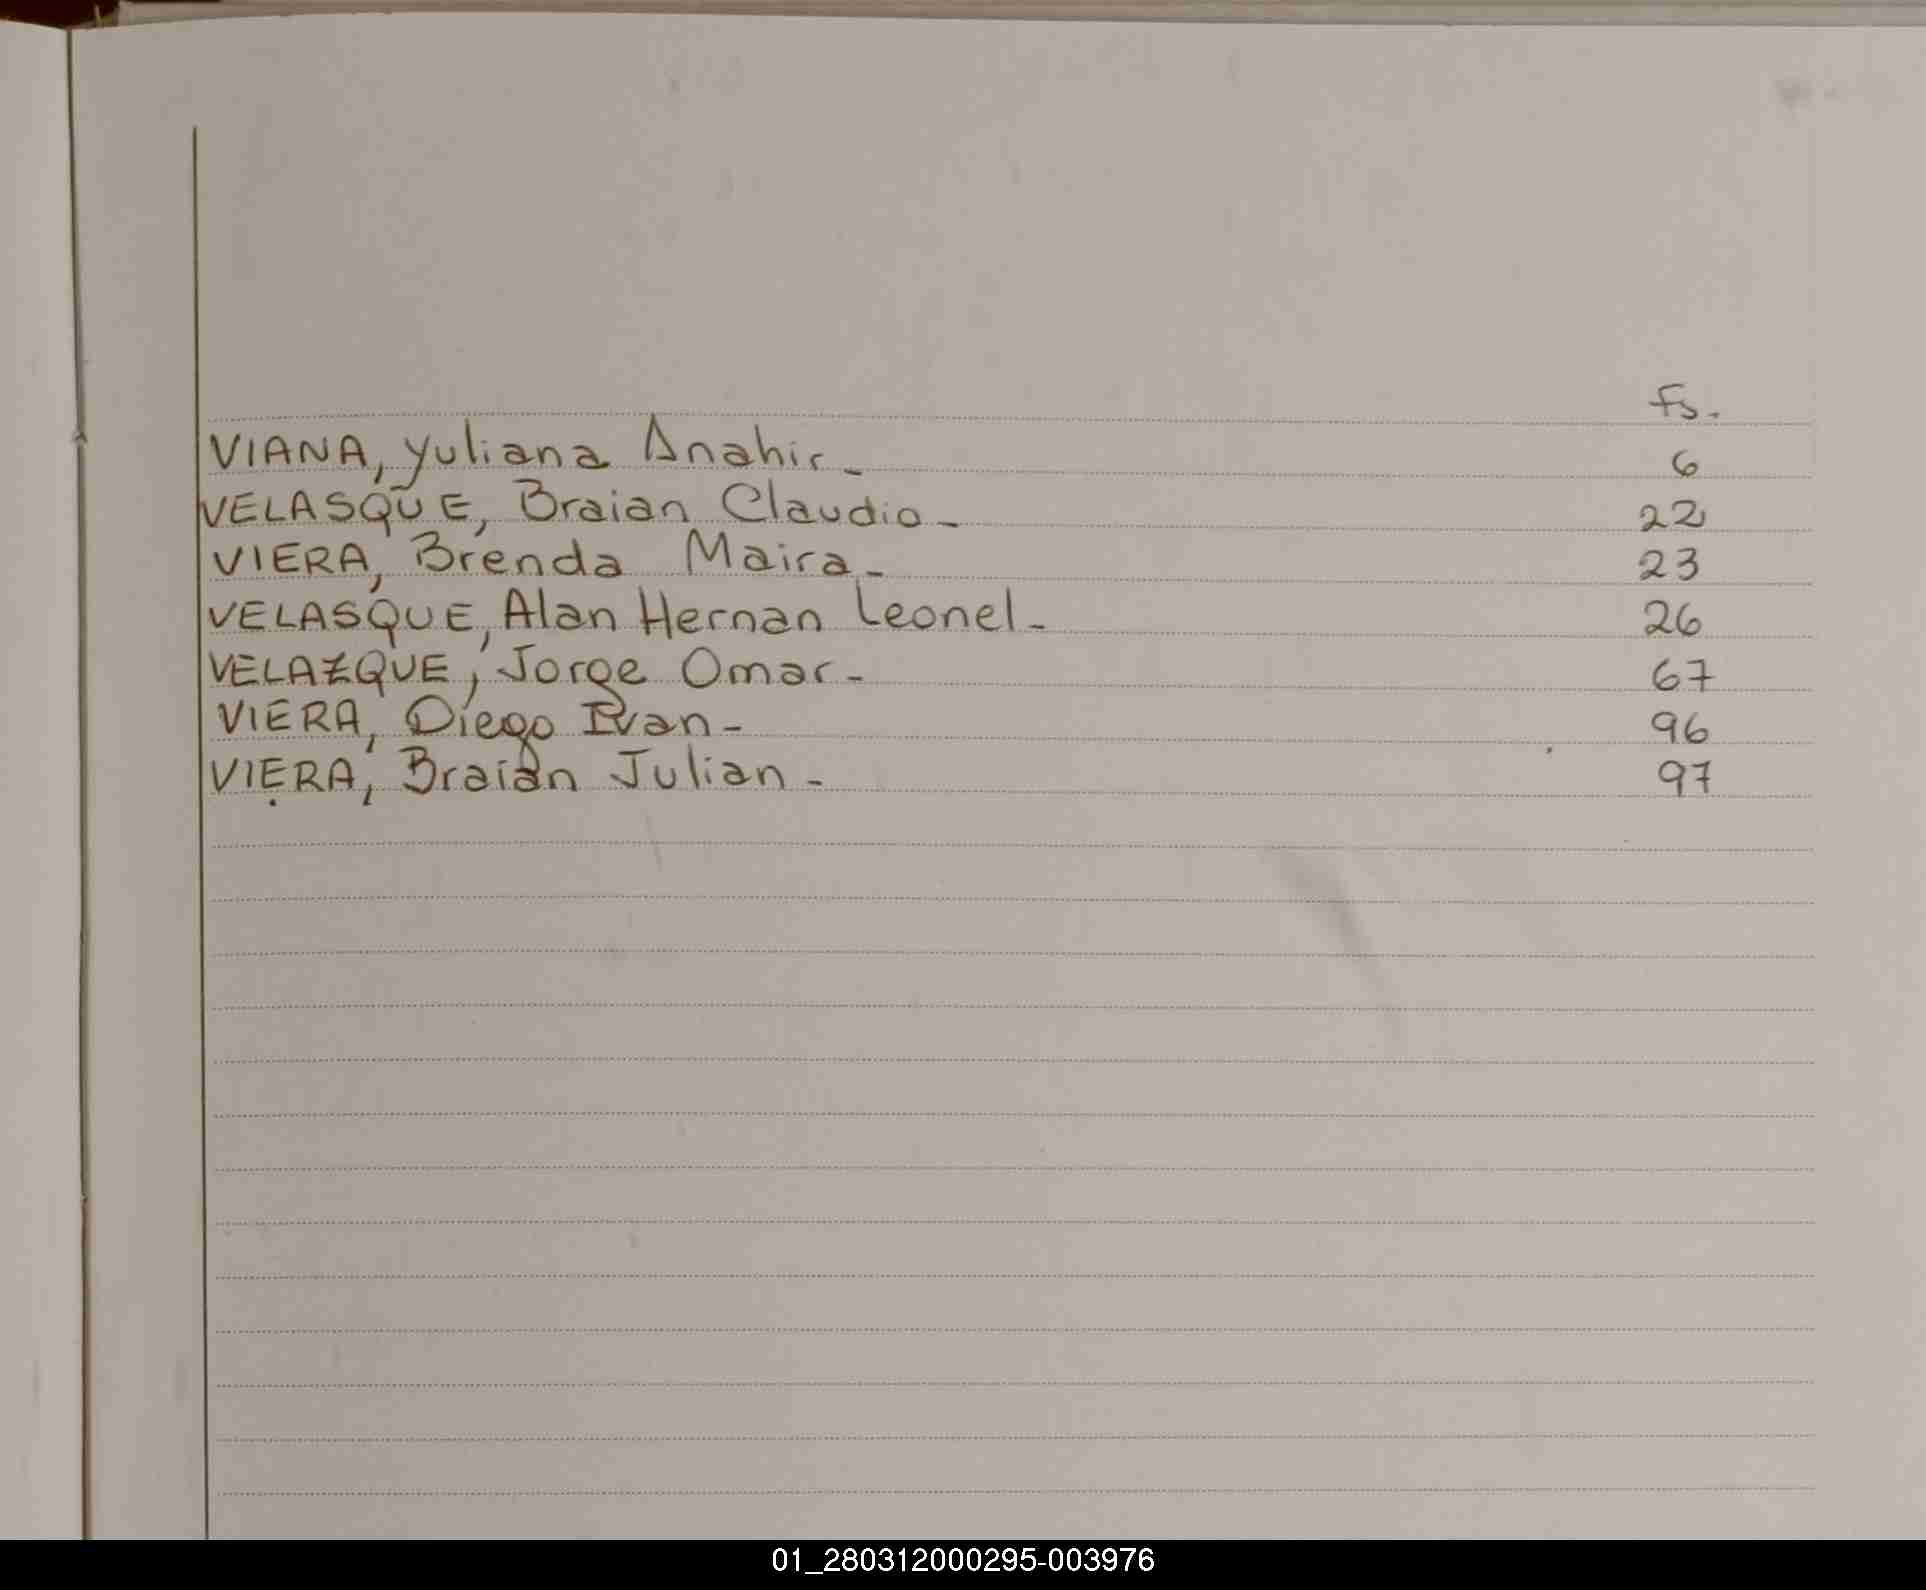 Fs.
VIANA, Yuliana Anahir- 6
VELASQUE, Braian Claudio- 22
VIERA, Brenda Maira- 23
VELASQUE, Alan Hernan Leonel- 26
VELAZQUE, Jorge Omar- 67
VIERA, Diego Ivan- 96
VIERA, Braian Julian- 97
01_280312000295-003976